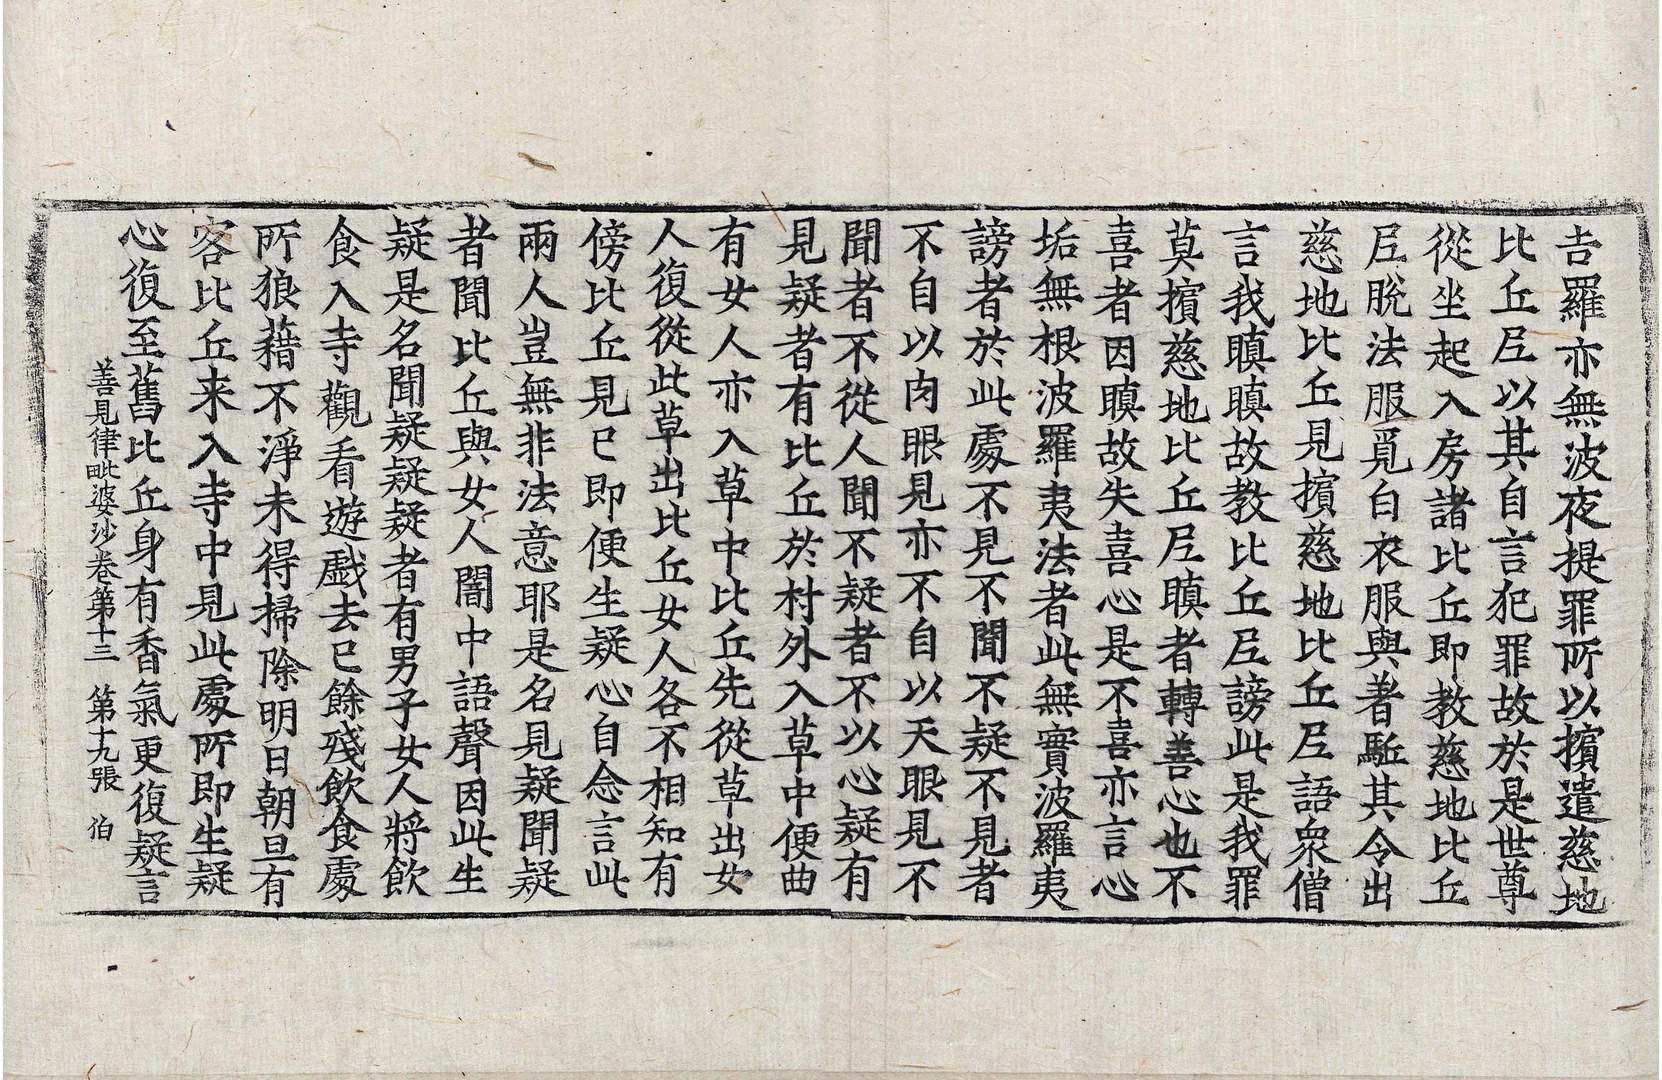 吉羅亦無波夜提罪所以擯遣慈地
比丘尼以其自言犯罪故於是世尊
從坐起入房諸比丘即教慈地比丘
尼脫法服覓白衣服與著駈其令出
慈地比丘見擯慈地比丘尼語衆僧
言我瞋瞋故教比丘尼謗此是我罪
莫擯慈地比丘尼瞋者轉善心也不
喜者因瞋故失喜心是不喜亦言心
垢無根波羅夷法者此無實波羅夷
謗者於此處不見不聞不疑不見者
不自以肉眼見亦不自以天眼見不
聞者不從人聞不疑者不以心疑有
見疑者有比丘於村外入草中便曲
有女人亦入草中比丘先從草出女
人復從此草出比丘女人各不相知有
傍比丘見已即便生疑心自念言此
兩人豈無非法意耶是名見疑聞疑
者聞比丘與女人闇中語聲因此生
疑是名聞疑疑疑者有男子女人將飲
食入寺觀看遊戲去已餘殘飲食處
所狼藉不淨未得掃除明日朝旦有
客比丘来入寺中見此處所即生疑
心復至舊比丘身有香氣更復疑言
善見律毗婆沙卷第十三　第十九張　伯